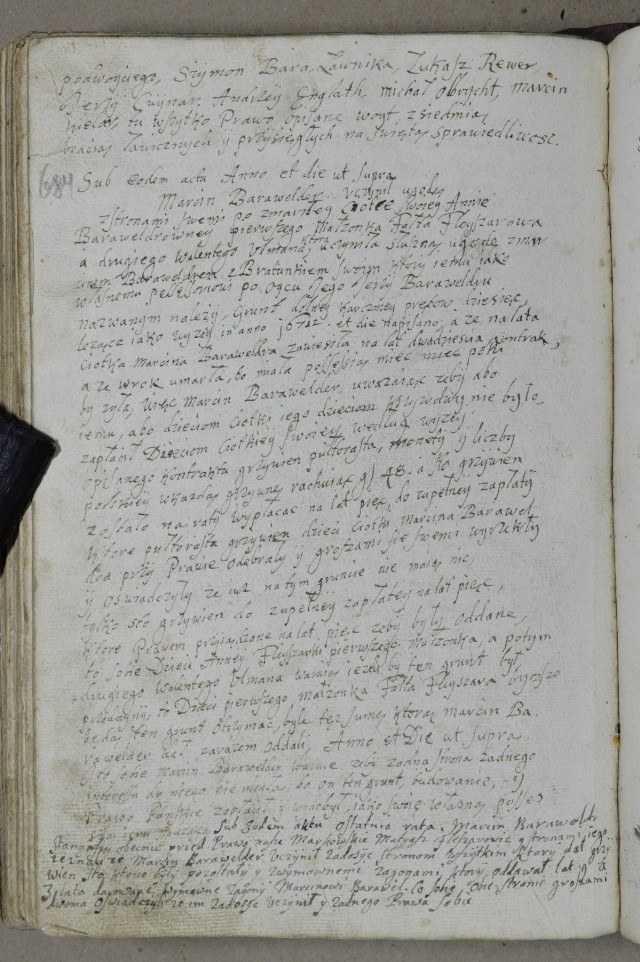 podwoyciego, Szymon Bara, Ławnika, Łukasz Rewer,
Jerzy Cuynar, Andrzey Englath, michał Obrycht, marcin
tu wszytko Prawo opisane woyt z siedmią
bracią Ławicznych y przysięgłych na swiętą sprawiedliwosc.
684 Sub eodem actu Anno et die ut supra
Marcin Barawelder uczynił ugodę
z stronami swemi po zmarłey Ciotce swoiey Annie
Baraweldrowney pierwszego Małzonka Folta Flyszarowa
a drugiego walentego Ulmana, ktora uczyniła słuszną ugodę z mar
cinem Barawelderem z Bratunkiem swoim ktory iemu iako
własnemu possessorowi po oycu Jego Jerzy Baraweldru
nazwanym nalezy, Grunt dolney karczmey prętow dziesięc,
lezące iako wyzey in anno 1672 et die napisano, a ze na lata
Ciotka Marcina Baraweldra zawiesiła na lat dwadziescia kontrakt,
a ze wrok umarła, bo miała possessią miec miec poki
by zyła, Więc Marcin Barawelder uwazaiąc zeby abo
iemu, abo dzieciom Ciotki iego dzieciom krzywdy nie było,
zapłacił Dzieciom Ciotkiey swoiey według wyzey
opisanego Kontraktu grzywien pułtorasta, monety y liczby
polskiey w kazdą grzywnę rachuiąc gł 48. a sto grzywien
zostało na raty wypłacac na lat pięc, do zupełney zapłaty
Ktore pułtorasta grzywien dzieci Ciotki Marcina Barawel
dra przy Prawie odebrały y groszami się swemi wyrzekły
y oswiadczyły ze iuz na tym gruncie nie maią nic,
tylko sto grzywien do zupełney zapłatey na lat pięc,
ktore Prawem przysądzone na lat pięc zeby były oddane,
to sobie Dzieci Anney Flyszarki pierwszego małzonka, a potym
drugiego walentego Ulmana waruią iezeliby ten grunt był
przedayny, to Dzieci pierwszego małzonka Folta Flyszara blizsze
będą ten grunt otrzymac, byle tęz sumę ktorą Marcin Ba.
rawelder dał zarazem oddali, Anno et Die ut supra.
Marcin Barawelder waruie zeby zodna strona zadnego
interessu do niego nie miała, bo on ten grunt, budowanie, y
Prawo Panskie zapłacił y iako swoię własną posses
Sub Eodem aktu Ostatnia rata. Marcin Barawelder
obecnie przed Prawo nasze Markowskie Matyasz Fleszarowic z stronami iego
zeznaie ze Marcin Barawelder uczynił zadosyc stronom wszytkim ktory dał grzy
wien sto ktore były pozostały y z wymowneme zagonami, ktory oddawał lat
z lata wymowne zagony Marcinowi Barawel. Co sobie, obie stronie groszami
dwoma Oswiadczyli ze im zadosyc uczynił y zadnego Prawa sobie